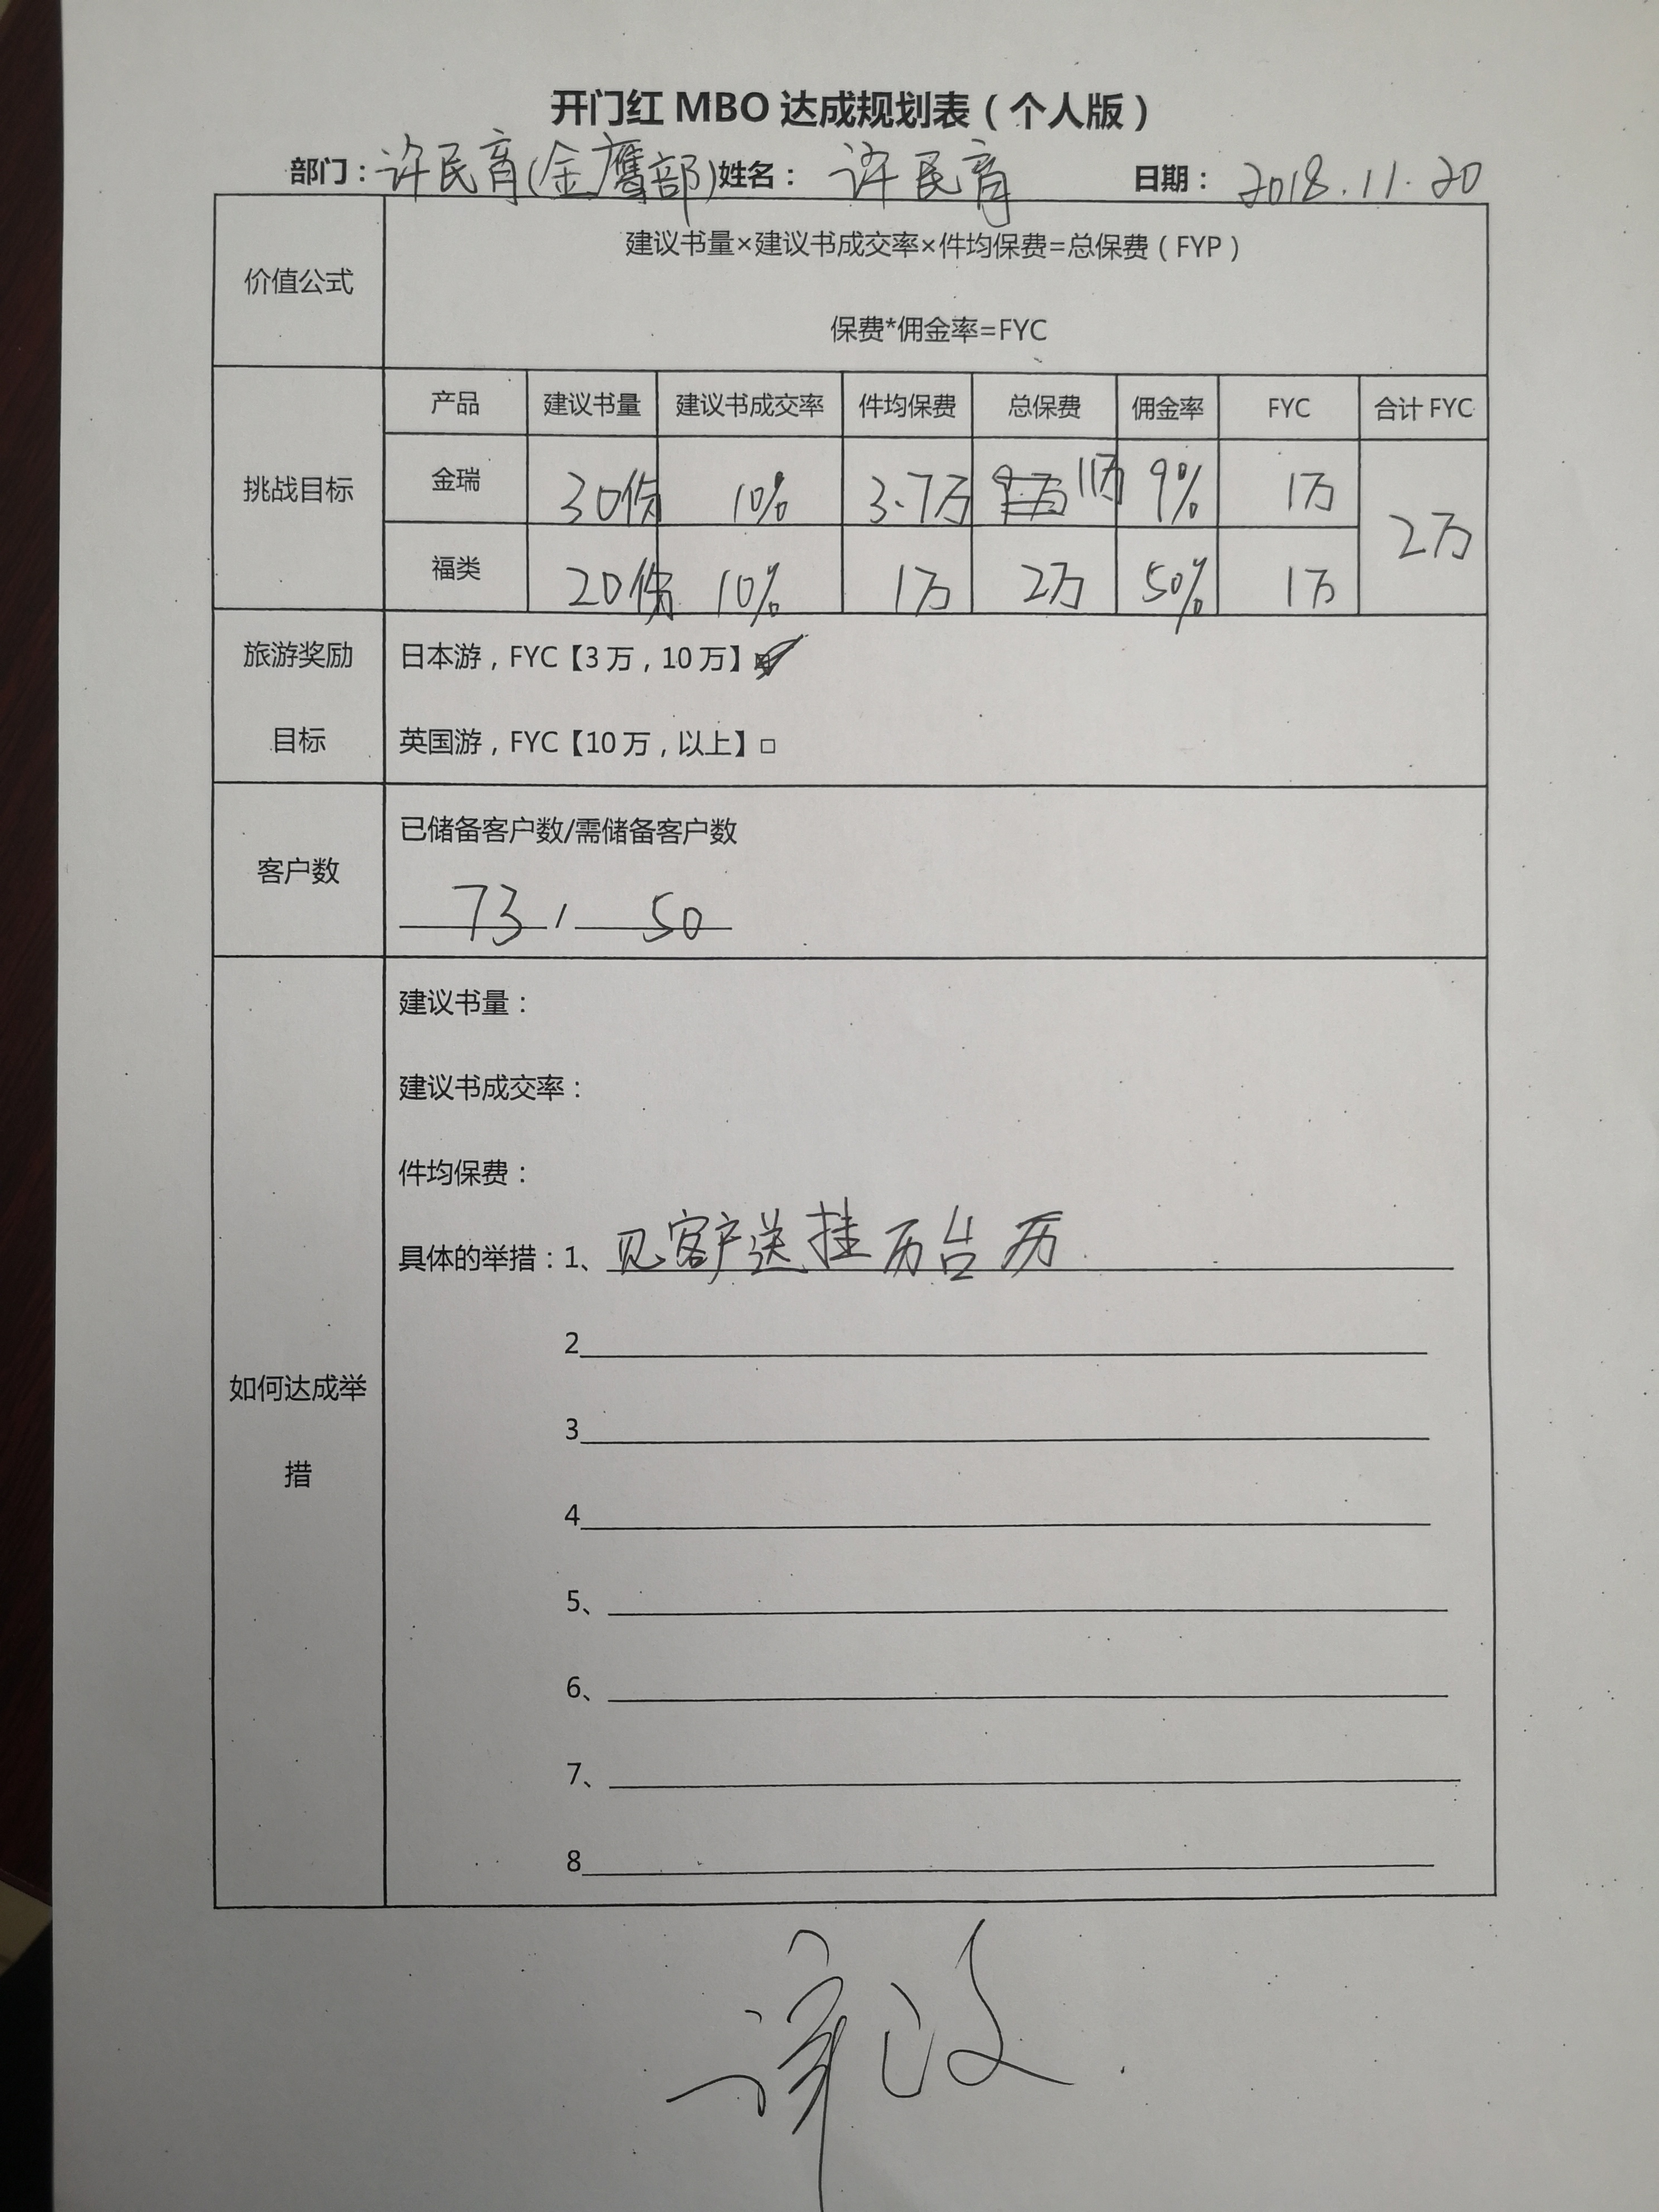 开门红 MBO 达成规划表（个人版）
部门：许民育(金鹰部) 姓名： 许民育 日期： 2018.11.20
价值公式
建议书量×建议书成交率×件均保费=总保费（FYP）
保费*佣金率=FYC
挑战目标
产品 建议书量 建议书成交率 件均保费 总保费 佣金率 FYC 合计 FYC
金瑞 30份 10% 3.7万 11万 9% 1万 2万
福类 20份 10% 1万 2万 50% 1万
旅游奖励
目标
日本游，FYC【3 万，10 万】☑
英国游，FYC【10 万，以上】□
客户数
已储备客户数/需储备客户数
73 / 50
如何达成举
措
建议书量：
建议书成交率：
件均保费：
具体的举措：1、见客户送挂历台历.
2
3
4
5、
6、
7、
8